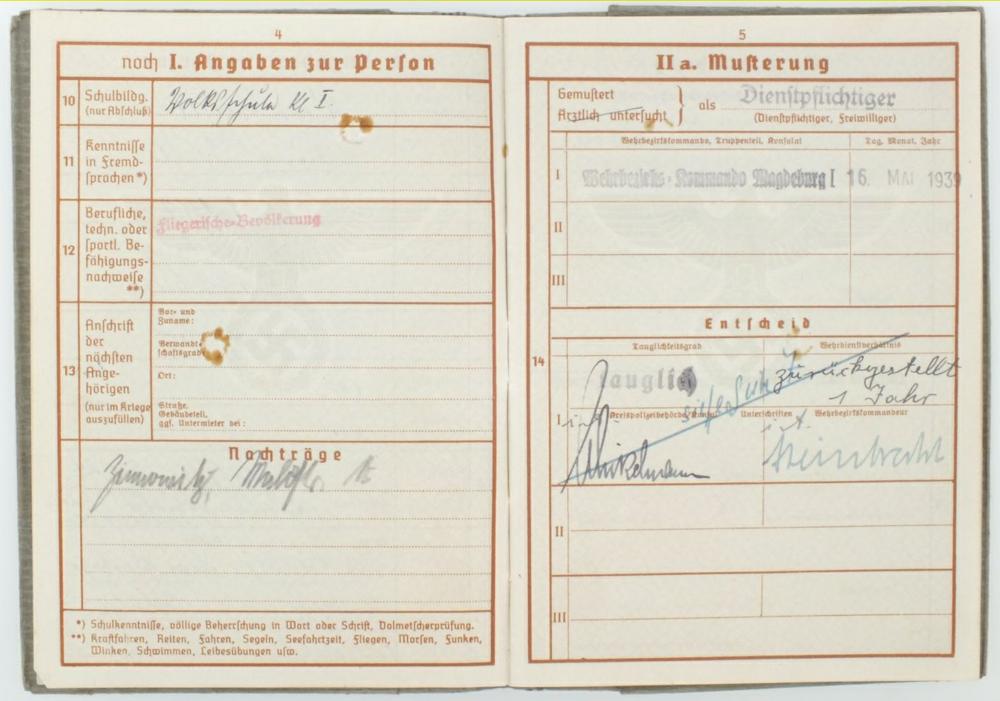 4
noch I. Angaben zur Person
10 Schulbildg.
(nur Abschluß)
Volksschule Kl I.
11 Kenntnisse
in Fremd-
sprachen *)
12 Berufliche,
techn. oder
sportl. Be-
fähigungs-
nachweise
**)
Fliegerische-Bevölkerung
13 Anschrift
der
nächsten
Ange-
hörigen
(nur im Kriege
auszufüllen)
Vor- und
Zuname:
Verwandt-
schaftsgrad
Ort:
Straße,
Gebäudeteil,
ggf. Untermieter bei:
Nachträge
*) Schulkenntnisse, völlige Beherrschung in Wort oder Schrift, Dolmetscherprüfung.
**) Kraftfahren, Reiten, Fahren, Segeln, Seefahrtzeit, Fliegen, Morsen, Funken,
Winken, Schwimmen, Leibesübungen usw.
5
II a. Musterung
Gemustert
Ärztlich untersucht
als Dienstpflichtiger
(Dienstpflichtiger, Freiwilliger)
Wehrbezirkskommando, Truppenteil, Konsulat
Tag, Monat, Jahr
I Wehrbezirks-Kommando Magdeburg I 16. MAI 1939
II
III
14
Entscheid
Tauglichkeitsgrad
Wehrdienstverhältnis
tauglich
zurückgestellt
1 Jahr
I
Kreispolizeibehörde
Unterschriften
Wehrbezirkskommandeur
II
III